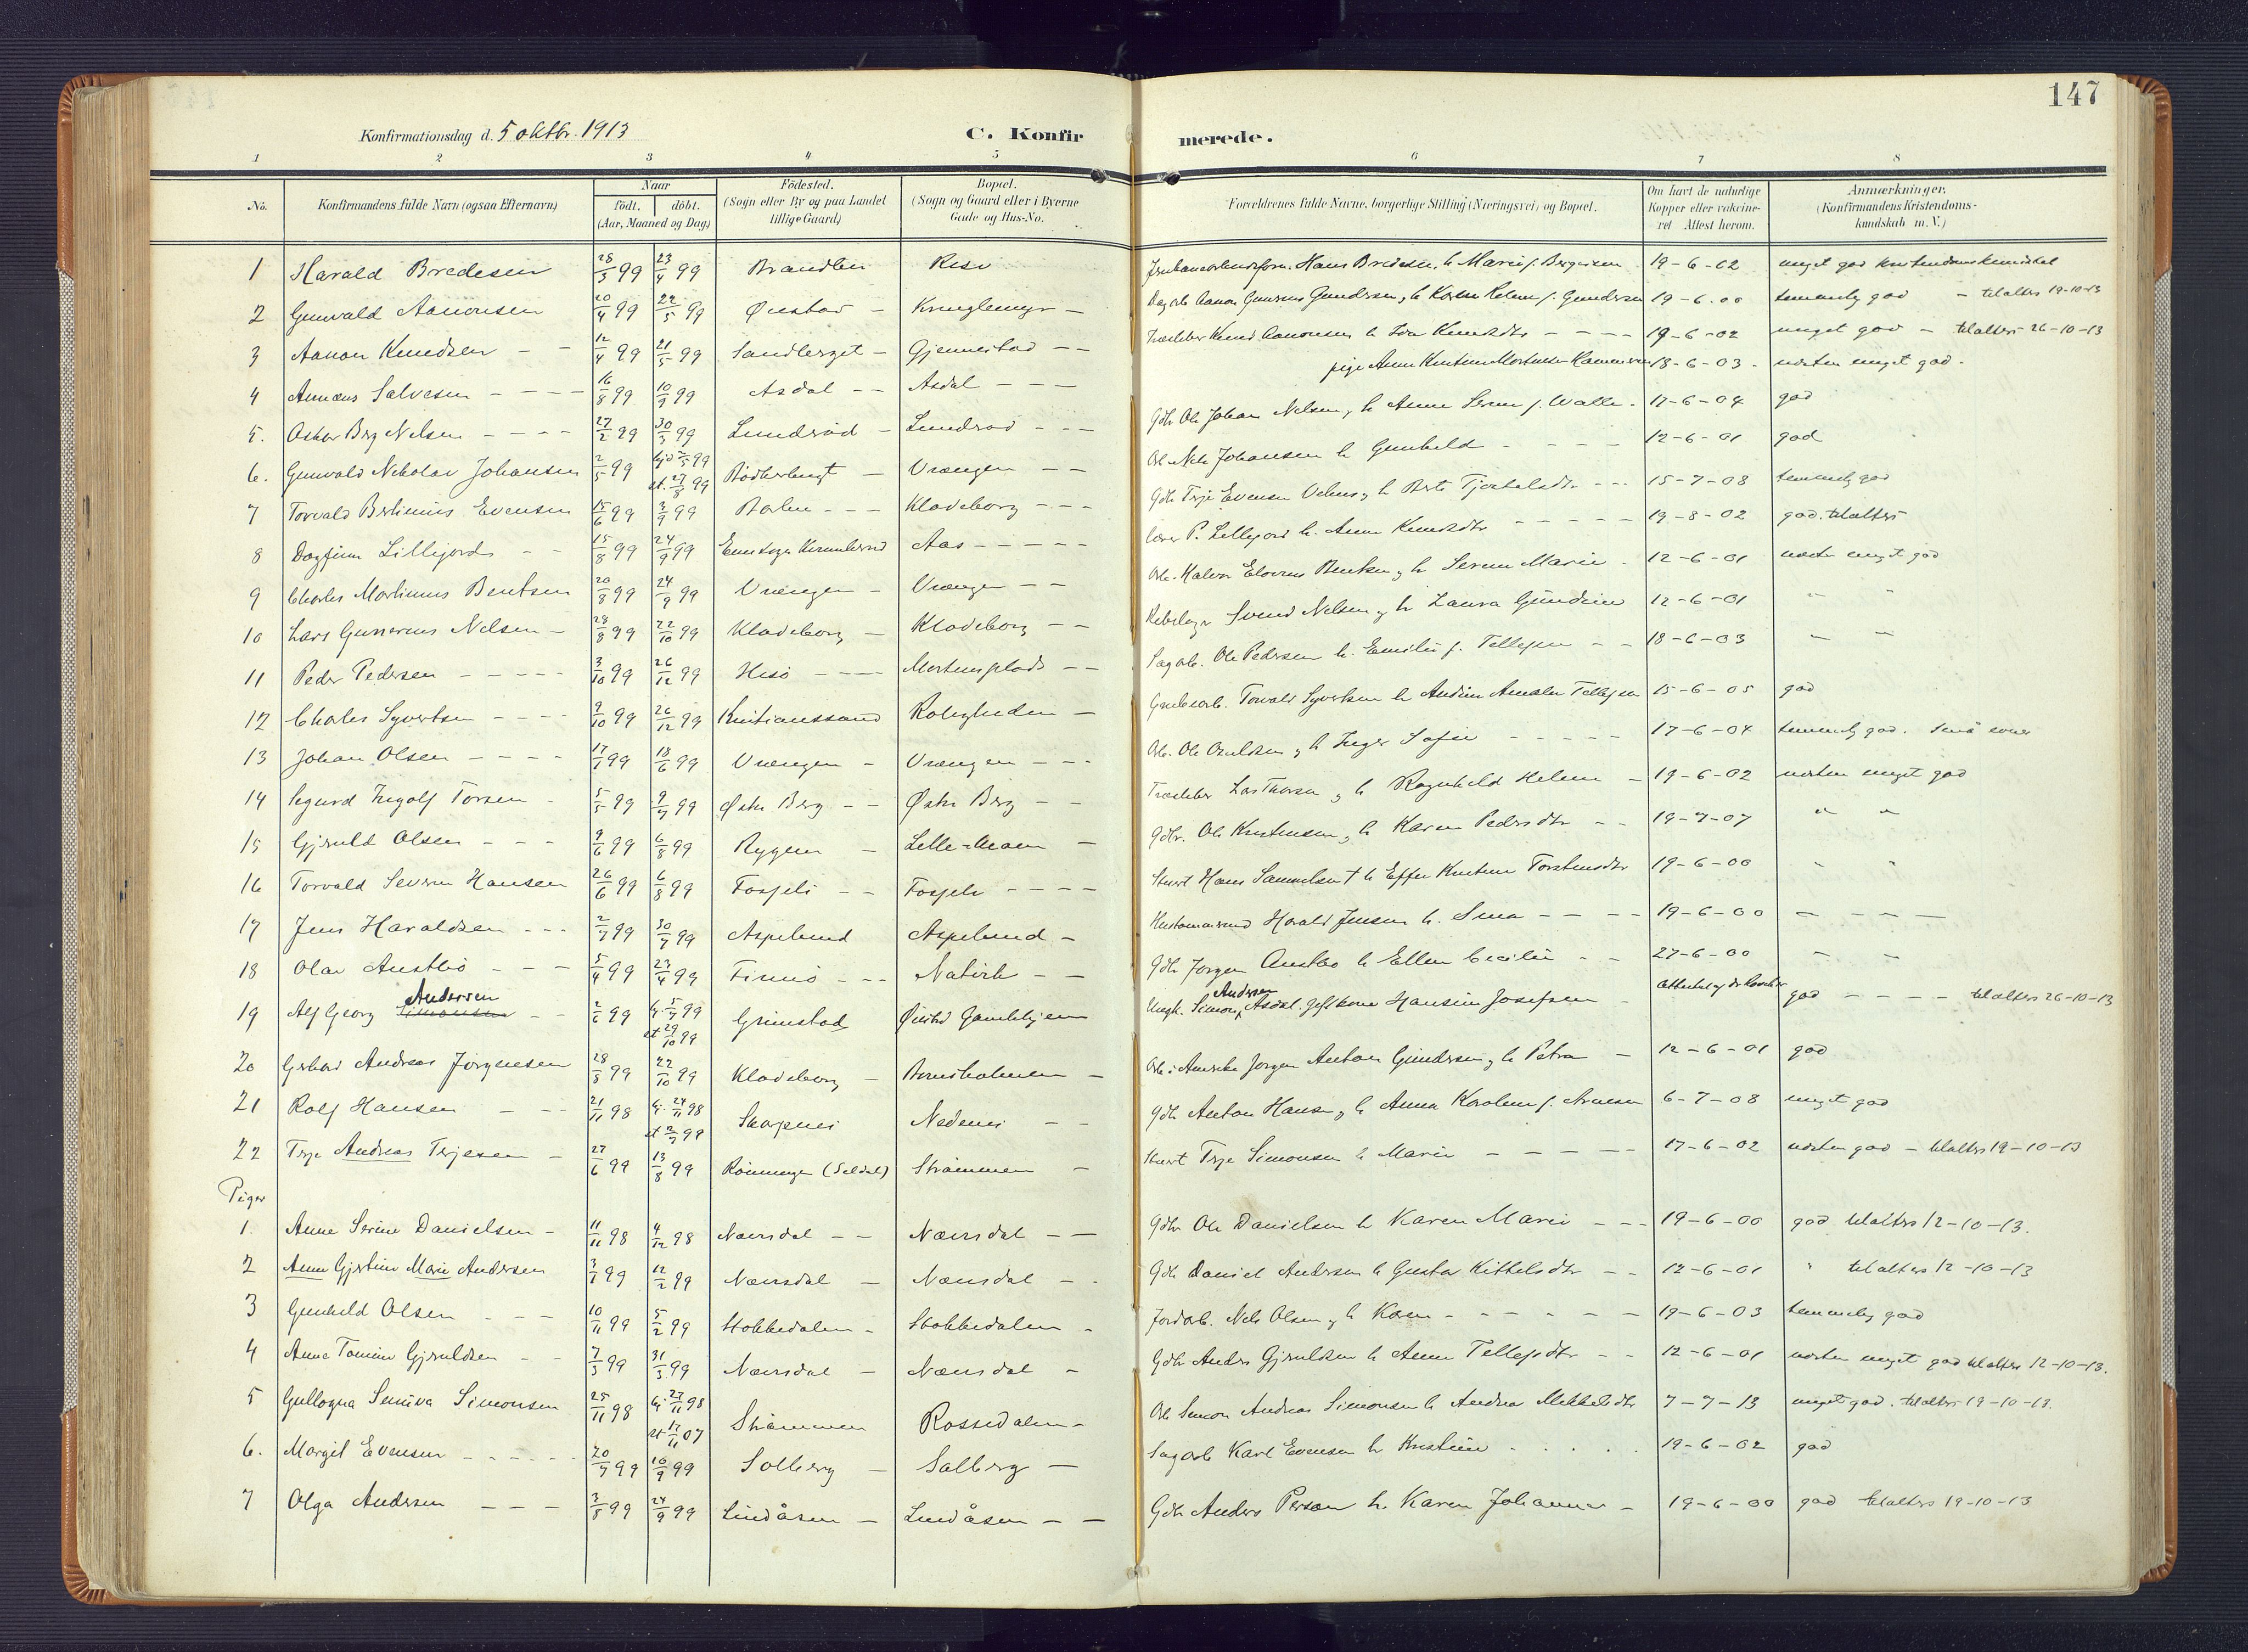 147
Konfirmationsdag d. 5 oktbr. 1913 C. Konfirmerede.
1 2 3 4 5 6 7 8
No. Konfirmandens fulde Navn (ogsaa Efternavn) Naar født. døbt. (Aar, Maaned og Dag) Födested. (Sogn eller By og paa Landet tillige Gaard) Bopæl. (Sogn og Gaard eller i Byerne Gade og Hus-No. Forældrenes fulde Navne, borgerlige Stilling (Næringsvei) og Bopæl. Om havt de naturlige Kopper eller vakcineret Attest herom. Anmærkninger. (Konfirmandens Kristendomskundskab m. V.)
1 Harald Bredesen 28/3 99 23/4 99 Hans Bredesen h. Marie f. Bergersen 19-6-02 meget god kristendomskundskab
2 Gunvald Aanonsen 20/4 99 22/5 99 Øiestad - Krøglemyr - Gundersen 19-6-00 temmelig god - tilalters 19-10-13
3 Aanon Knudsen - - 12/4 99 21/5 99 Sandberget - Gjennestad - - Knud Aanonsen h. Knudsdtr - - - 19-6-02 meget god - tilalters 26-10-13
4 Salvesen - - - 16/8 99 10/9 99 Asdal - - Asdal - - - pige Anne Kristine Mortensen 18-6-03 - næsten meget god.
5. Oskar Berg Nelsen - - - - 27/2 99 30/3 99 Lundrød - Lundrød - - - Gdbr Ole Johan Nelsen, h. Anne f. Walle - 17-6-04 god
6. Gunvald Nikolai Johansen 2/5 99 hj 2/5 99 st. 27/8 99 Vrængen - - Arb. Nils Johansen h. Gunhild - - - - 12-6-01 god
7 Torvald Evensen 15/6 99 3/9 99 - - - Klodeborg - - - Gdbr Terje Evensen h. Berte - - - 15-7-08 temmelig god
8 Dagfinn Lillejord - - 15/8 99 24/9 99 Aas - - - - - Lærer P. Lillejord h. Anne Knudsdtr - - - - - 19-8-02 god. tilalters
9 Charles Martinius Bentsen 20/8 99 24/9 99 Vrængen - Vrængen - - Arb. Bentsen, h. Serine Marie - 12-6-01 næsten meget god
10 Lars Gunerius Nelsen - 28/8 99 22/10 99 Klodeborg - Klodeborg - - Svend Nelsen, h. Laura Gundine 12-6-01 " "
11 Peder Pedersen - - - - - 3/10 99 26/12 99 Hisø - - - - Mortensplads - - Sagarb. Ole Pedersen h. Emilie f. Tellefsen - - 18-6-03 " "
12 Charles Syvertsen - - - - 9/10 99 26/12 99 Kristianssand Roligheden - Grubearb. Torvald Syvertsen h. Andrine Amalie Tellefsen 15-6-05 god
13 Johan Olsen - - - - 17/1 99 18/6 99 Vrængen - Vrængen - - - Arb. Ole h. Inger Sofie - - - - - 17-6-04 temmelig god. små evner
14 Sigurd Ingolf Torsen - 5/5 99 9/7 99 Østre Berg - - Østre Berg - - Lars Thorsen, h. Ragnhild Helene - 19-6-02 næsten meget god
15 Gjeruld Olsen - - - 9/6 99 6/8 99 Rygene - Lille- - Gdbr. Ole Kristensen, h. Karen Pedersdtr - - 19-7-07 " "
16 Torvald Severin Hansen 26/6 99 6/8 99 Fosseli - - Fosseli - - - - Hans Samuelsen † h. Kristine Torstensdtr 19-6-00 " "
17 Jens Haraldsen - - - 2/7 99 30/7 99 Aspelund Aspelund - Harald Jensen h. - - - - 19-6-00 - - - -
18 Olav Austbø - - - 5/4 99 23/4 99 Finnø - - - - - Gdbr Jørgen Austbø h. Ellen Cecilie - - 27-6-00 - -
19 Alf Georg ~~Simonsen~~ Andersen - - 2/6 99 hj. 5/7 99 st 29/10 99 Grimstad Øiestad Gamlehjem Ungk. Simon Andersen, Asdal. Hansine Josefsen - god - - - - tilalters 26-10-13
20 Gerhard Andreas Jørgensen 28/8 99 22/10 99 Klodeborg - Bornsholmen - Arb. i Amerika Jørgen Anton Gundersen, h. Petra - 12-6-01 god
21 Rolf Hansen - - - 21/11 98 hj. 24/11 98 st 2/7 99 Skarpnes Nedenes - - Gdbr Anton Hansen, h. Anna Karoline f. Arnesen 6-7-08 meget god
22 Terje Andreas Terjesen - 27/6 99 13/8 99 Rønningen (Seldal) Strømmen - Terje Simonsen h. Marie - - - - - 17-6-02 næsten god - tilalters 19-10-13
Piger
1. Anne Serine Danielsen - 11/11 98 4/12 98 Nævisdal - - Nævisdal - - Gdbr Ole Danielsen h. Karen Marie - - - 19-6-00 god tilalters 12-10-13.
2 Anne Gjertine Marie Andersen 3/1 99 12/2 99 Nævisdal - Nævisdal - - Gdbr Daniel Andersen h. Gusta Kittelsdtr - - 12-6-01 " tilalters 12-10-13
3 Gunhild Olsen - - - 10/11 99 5/2 99 Stokkedalen - Stokkedalen - Jordarb. Nils Olsen, h. Karen - - - - - - 19-6-03 temmelig god
4 Anne Tomine Gjeruldsen - - 7/3 99 31/3 99 Nævisdal - Nævisdal - Gdbr Anders Gjeruldsen h. Anne Tellefsdtr - - 12-6-01 næsten meget god tilalters 12-10-13.
5 Gullogna Seniva Simonsen 25/11 98 hj. 27/11 98 st 17/11 07 Strømmen Rossedalen - Arb Simon Andreas Simonsen h. Andrea Mikkelsdtr 7-7-13 meget god. tilalters 19-10-13.
6. Margit Evensen - - - - - 20/7 99 10/9 99 Solberg - Solberg - Sagarb Karl Evensen h. Kristine - . . . . 19-6-02 god
7 Olga Andersen - - - 3/8 99 24/9 99 Lindåsen - Lindåsen - - Gdbr Anders Person h. Karen Johanne - 19-6-00 god tilalters 19-10-13